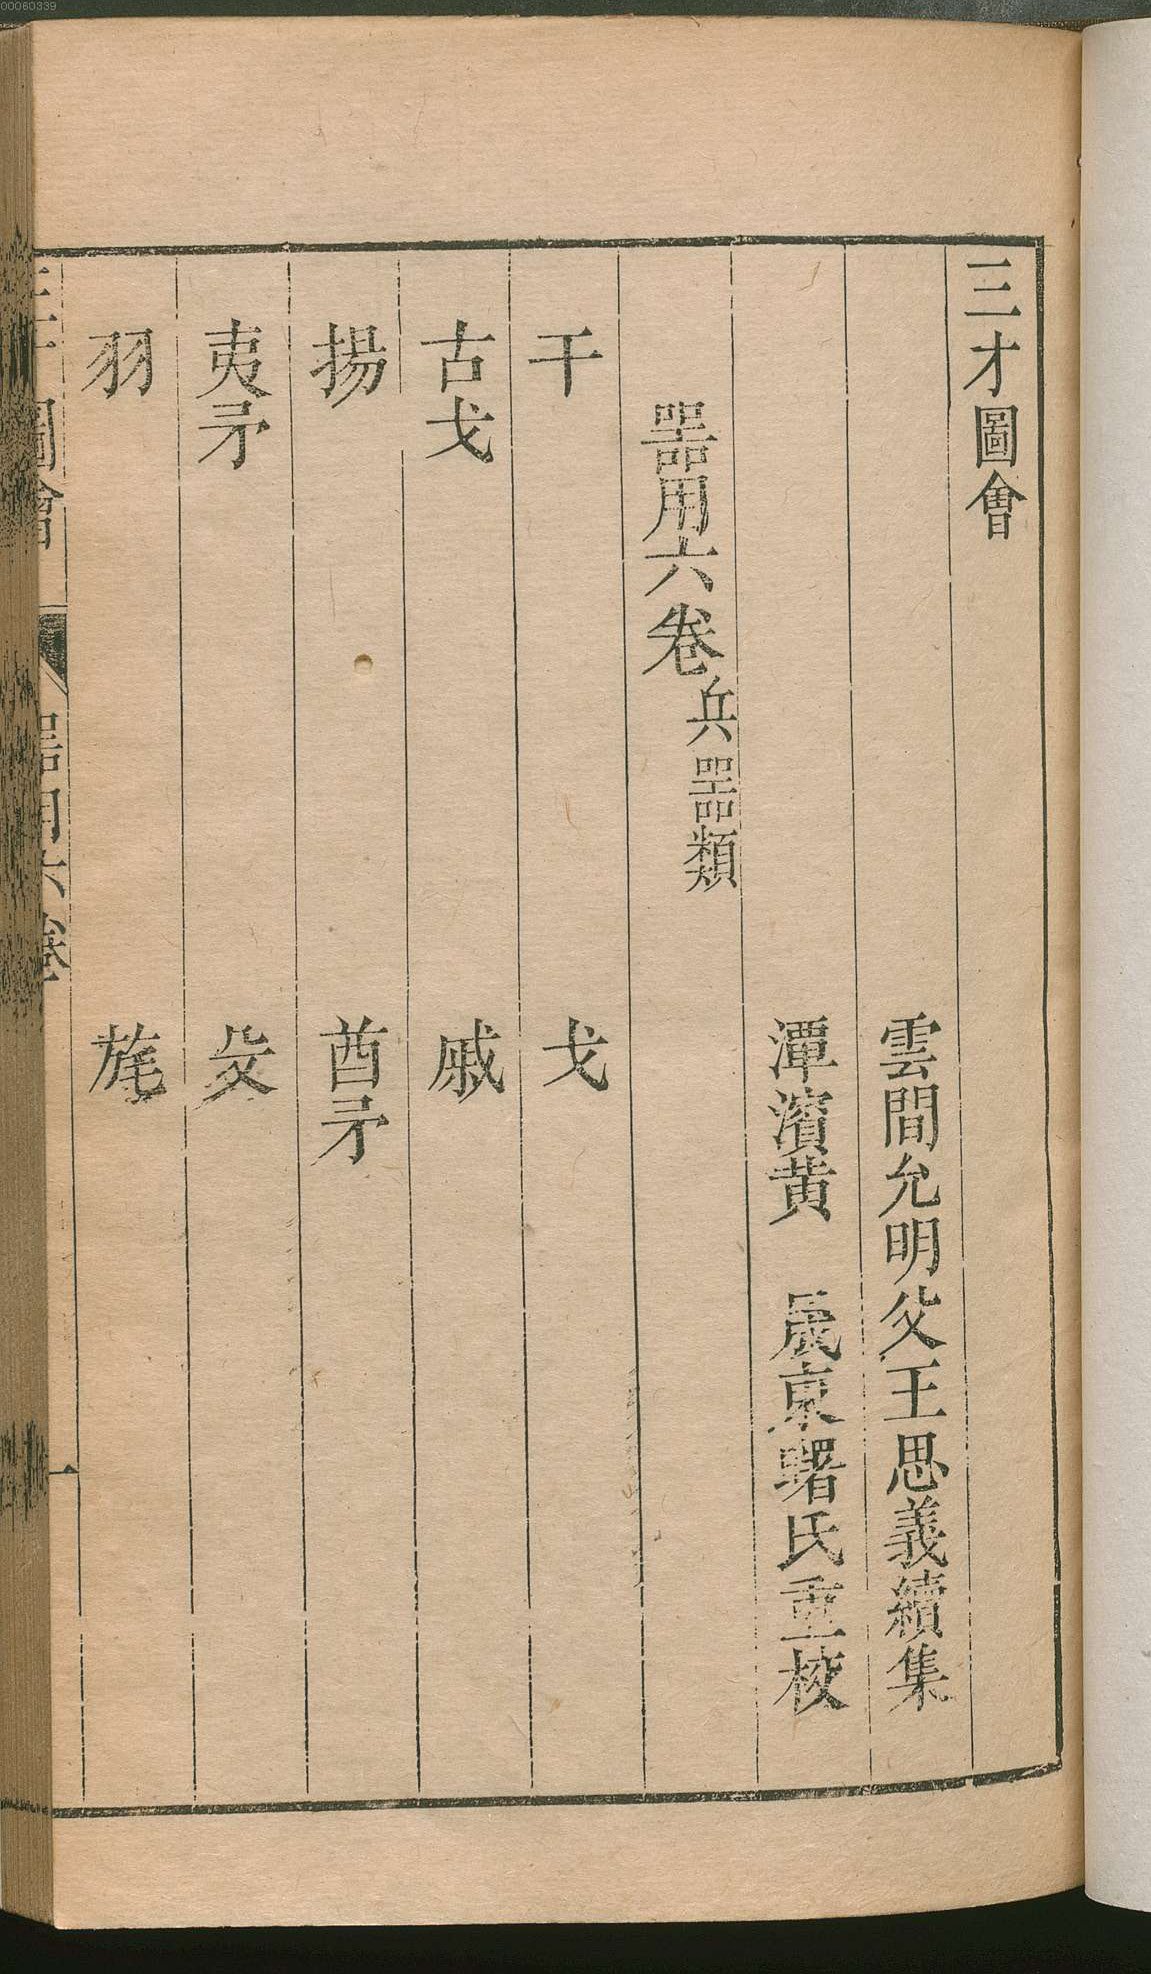 三才圖會
雲間允明父王思義續集
潭濱黃 晟東曙氏重校
器用六卷 兵器類
干 戈
古戈 戚
揚 酋矛
夷矛 殳
羽 旄
圖會 器用六卷 一
00060339